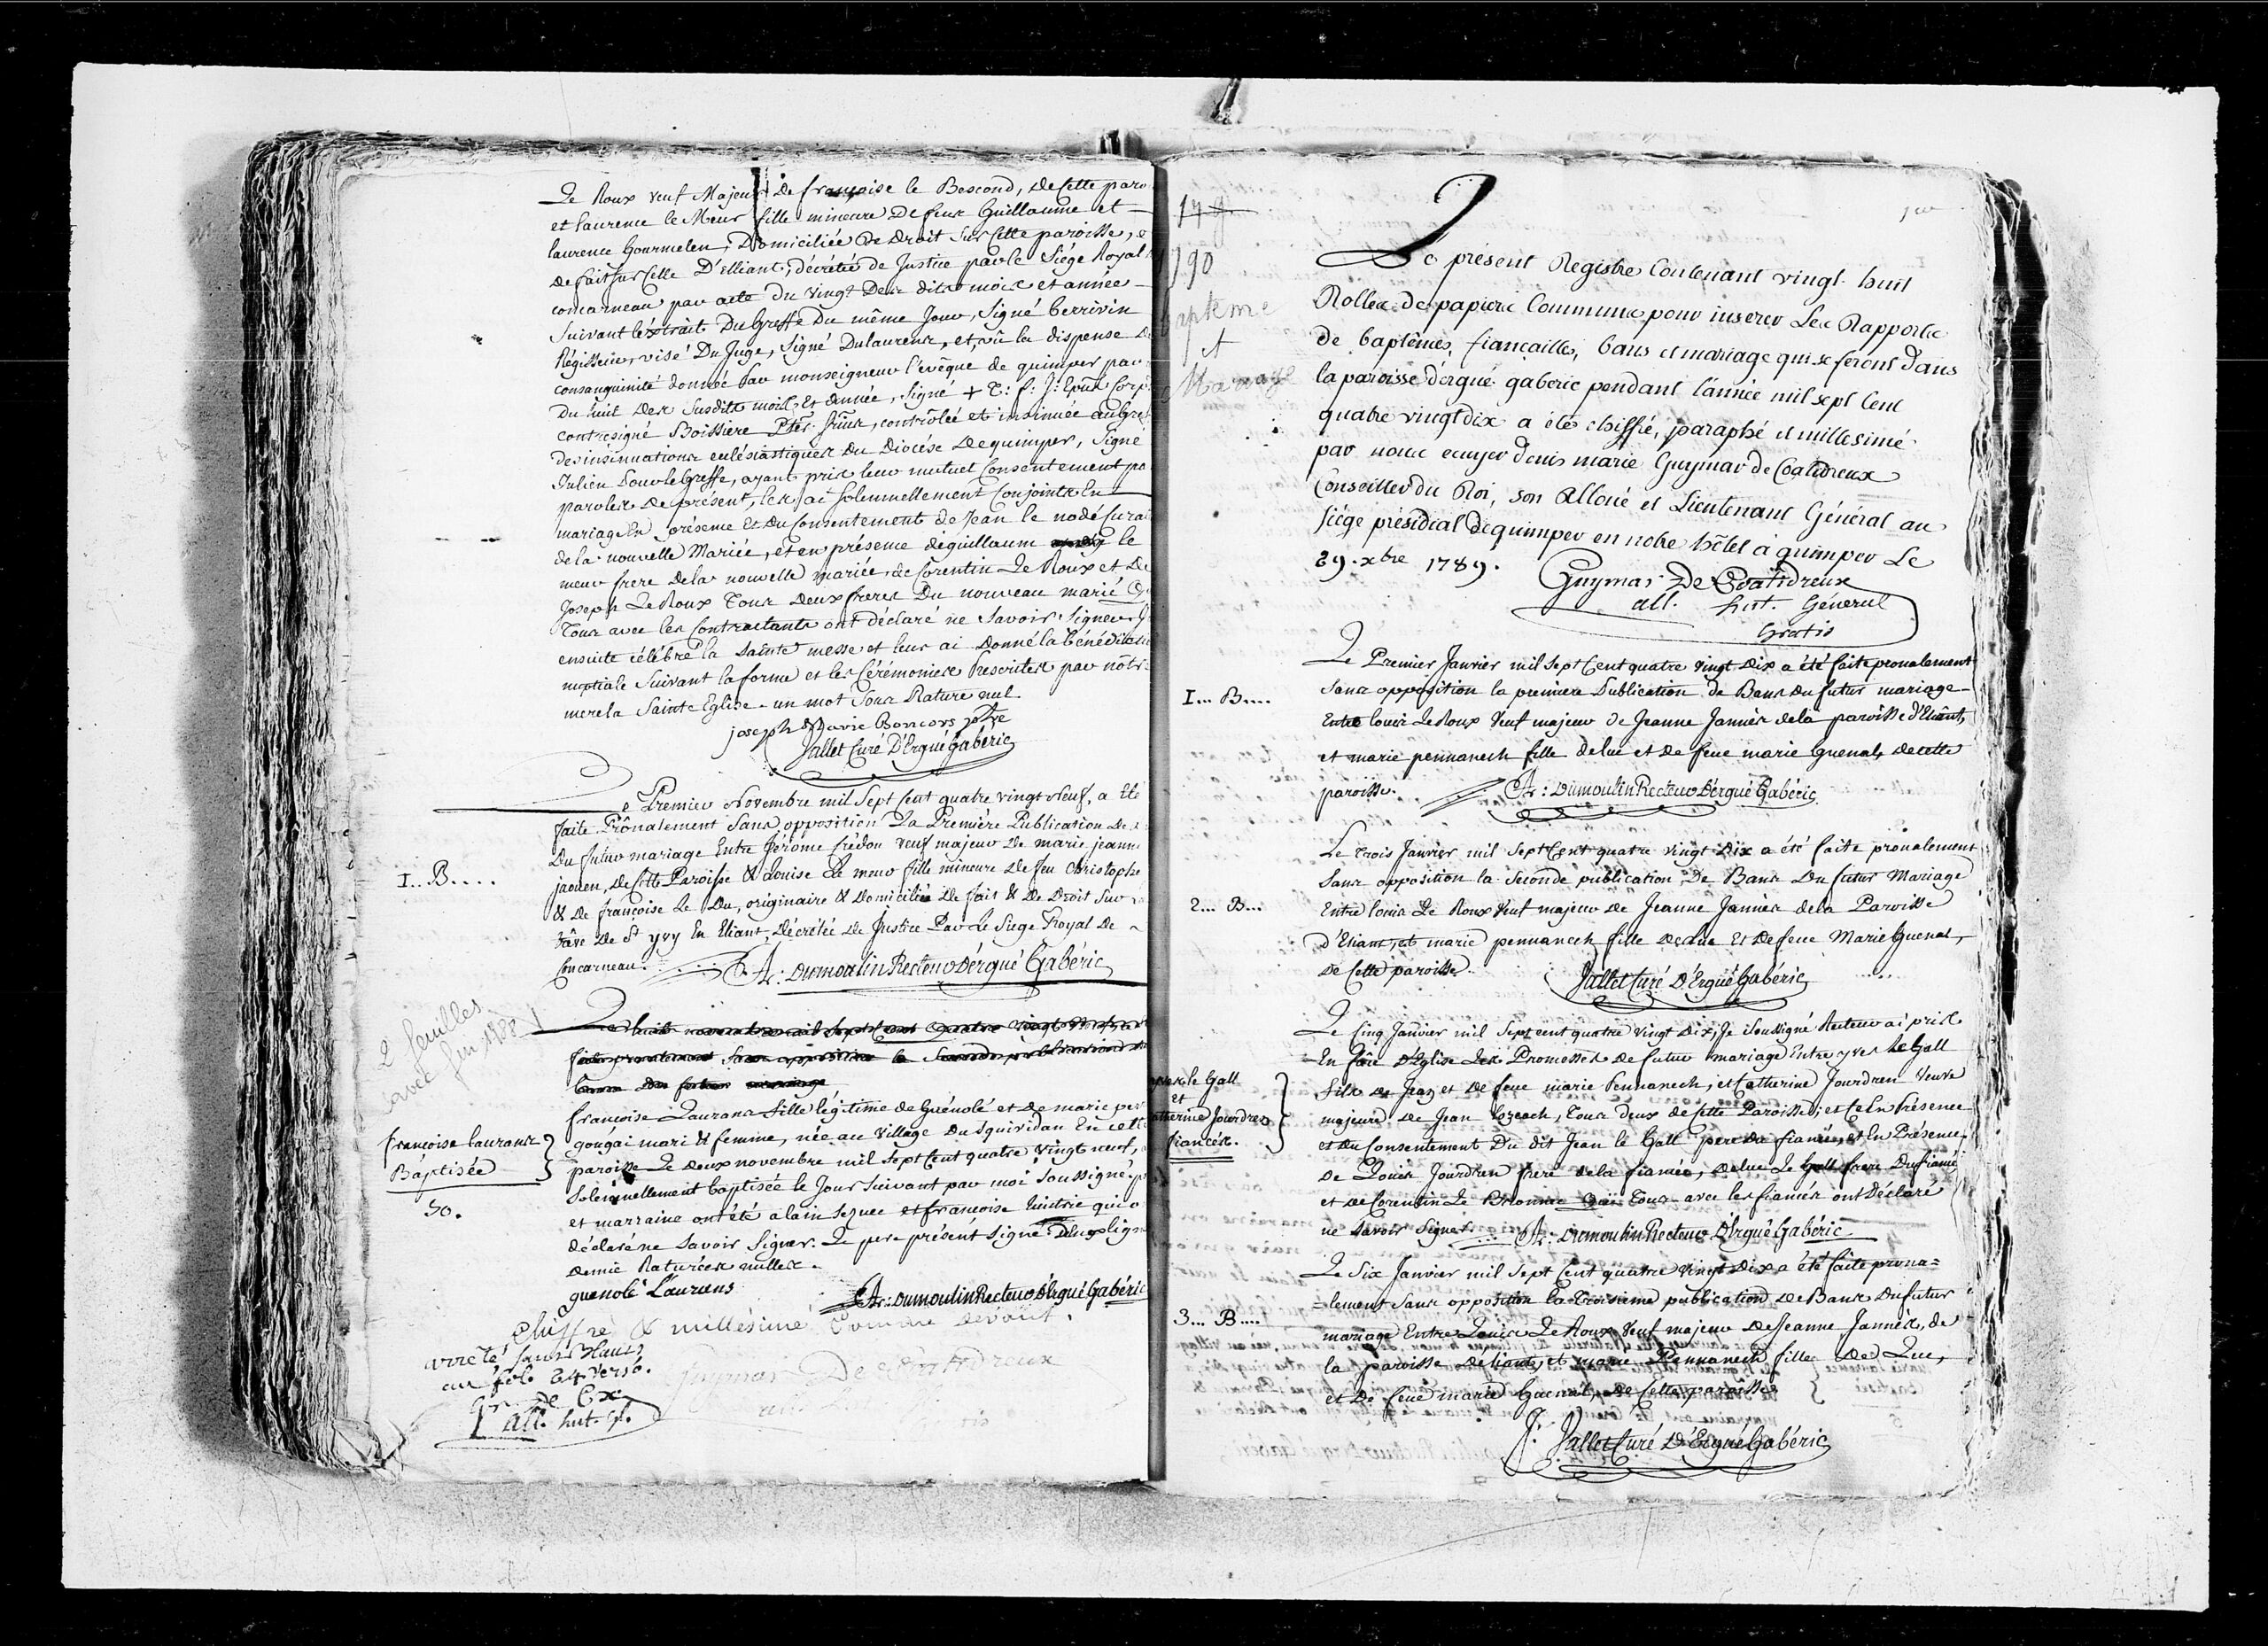 Le Roux veuf Majeur de françoise le Bescond, de Cette paro
et laurence le Meur fille mineure De feux Guillaume et
laurence Gourmelen, Domiciliée De Droit sur Cette paroisse, e
de fait sur Celle D'Elliant, décrétée de Justice par le Siége Royal
concarneau par acte du vingt Des dits mois et année
Suivant l'extrait Du Greffe Du même Jour, Signé Berrivin
Régisseur, visé Du Juge, Signé Dulaurens, et, vû la dispense De
consanguinité donnée Par monseigneur l'evêque de quimper
Du huit Des Susdits mois Et année, Signé + T: f: J:
contresigné Boissiere contrôlée et insinuée au Gref
des insinuations eclésiastiques Du Diocése De quimper, Signé
Julien Pour le Greffe, ayant pris leur mutuel Consentement pa
paroles De présent, les ai Solemnellement Conjoints En
mariage En présence Et du Consentement de Jean le nodé Cura
de la nouvelle Mariée, et en présence de guillaum le
meur frere de la nouvelle mariée, de Corentin Le Roux et De
Joseph Le Roux Tous deux freres Du nouveau marié Q
Tous avec les Contractants ont déclaré ne Savoir Signer. J
ensuite célébré la Sainte messe et leur ai Donné la bénédiction
nuptiale Suivant la forme et les Cérémonies Prescrites par nôtr
mere la Sainte Eglise. un mot Sous Rature nul.
joseph Marie Boncors ptre
Jallet Curé D'Ergué Gabéric
Le Premier Novembre mil Sept Cent quatre vingt Neuf, a Eté
faite Prônalement Sans opposition La Première Publication De
Du futur mariage Entre Jérôme Crédou veuf majeur De marie jeanne
I... B....
jaouen, De Cette Paroisse & Louise Le meur fille mineure De feu Christophe
& De françoise Le Du, originaire & Domiciliée De fait & De Droit Sur
Trêve De St yvy En Eliant, Décrétée De Justice Par Le Siege Royal De
Concarneau. A: Dumoulin Recteur D'ergué Gabéric
2 feuilles
Le huit novembre mil Sept Cent quatre vingt neuf a été
faite pronalement Sans opposition la Seconde publication de
bans du futur mariage
françoise Laurans fille légitime de Guénolé et de marie per
gougai mari & femme, née au village Du Squividan En cette
françoise laurans
Baptisée
50.
paroisse Le deux novembre mil Sept Cent quatre vingt neuf,
Solemnellement baptisée le Jour Suivant par moi Soussigné. p
et marraine ont été alain et francoise quistric qui o
déclaré ne Savoir Signer. Le pere présent Signe. Deux lign
Demie Raturées nulles.
guenolé Laurans
A: Dumoulin Recteur D'Ergué Gabéric
Chiffré & millésimé Comme Devant.
arreté Sans blancs
au folo 24 verso.
Gr. De Cx
all. lieut. gl.
Guymar De Coatidreux
1er
179
1790
Baptême
et
Mariage
Le présent Registre Contenant vingt huit
Rolles de papiers Communs pour inserer Les Rapports
de baptêmes, fiancailles, bans et mariage qui se feront Dans
la paroisse d'ergué gaberic pendant l'année mil sept Cent
quatre vingt dix a été chiffré, paraphé et millesimé
par nous ecuyer denis marie Guymar de Coatidreux
Conseiller du Roi, son Alloué et Lieutenant Général au
siége présidial de quimper en notre hôtel à quimper Le
29. xbre 1789.
Guymar De Coatidreux
all. lieut. Géneral
Gratis
Le Premier Janvier mil Sept Cent quatre vingt Dix a été faite pronalement
I... B....
Sans opposition la premiere Publication de Bans Du futur mariage
Entre louis Le Roux Veuf majeur de Jeanne Jannès de la paroisse d'Eliant,
et marie pennanech fille de luc et De feue marie Guenal, de cette
paroisse. A: Dumoulin Recteur D'érgué Gabéric
Le trois Janvier mil Sept Cent quatre vingt Dix a été faite pronalement
Sans opposition la Seconde publication De Bans Du futur Mariage
2... B...
Entre louis Le Roux Veuf majeur De Jeanne Jannes de la Paroisse
d'Eliant, et marie pennanech fille de Luc Et De feue Marie Guenal,
De Cette paroisse. Jallet Curé D'Ergué Gabéric
Le Cinq Janvier mil Sept cent quatre vingt Dix, Je Soussigné Recteur ai pris
En face D'Eglise Les Promesses De futur mariage Entre yves Le Gall
yves le Gall
et
Catherine Jourdren
fiancés.
fils de Jean et De feue marie Pennanech, et Catherine Jourdren Veuve
majeure De Jean lozeach, Tous deux de Cette Paroisse; et Ce En Présence
et du Consentement Du dit Jean le Gall pere du fiancé, et En Présence
De Louis Jourdren frere de la fiancée, de luc Le Gall frere Du fiancé
et de Corentin Le Qui Tous avec les fiancés ont Déclaré
ne Savoir Signer. A: Dumoulin Recteur D'Ergué Gabéric
Le Six Janvier mil Sept Cent quatre vingt Dix a été faite prona=
=lement Sans opposition la Troisieme publication De Bans Du futur
3... B....
mariage Entre Louis Le Roux Veuf majeur De Jeanne Jannès, de
la paroisse D'eliant, et marie Pennanech fille De Luc,
et De feue marie Guenal, De Cette paroisse
J. Jallet Curé D'Ergué Gabéric